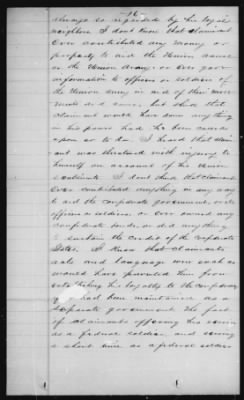 16
always so regarded by his loyal
neighbors I dont know that claimant
Ever contributed any money or
property to aid the Union cause
or the Union Army or Ever gave
information to officers or soldiers of
the Union army in aid of their move
ments did some, but think that
claimant would have done anything
in his power had he been called
upon so to do. I heard that claim
ant was threatened with injury to
himself on account of his Union
sentiments. I dont think that claimant
Ever contributed anything in any way
to aid the confederate government or its
officers or soldiers or ever owned any
confederate bonds or did anything
to sustain the credit of the confederate
States. I know that claimants
acts and language were such as
would have prevented him from
establishing his loyalty to the confederacy
if it had been maintained as a
separate government the fact
of claimants offering his services
as a federal soldier and serving
a short time as a federal soldier